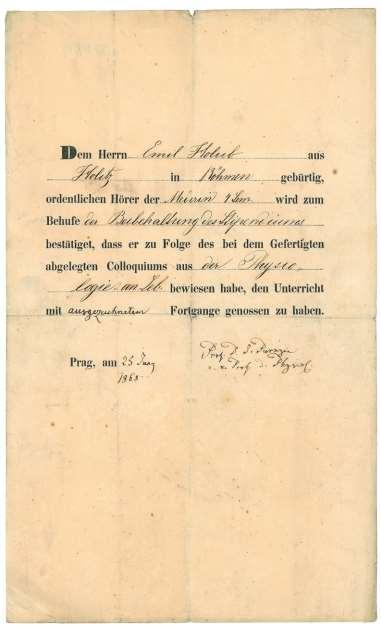 Dem Herrn Emil Holub aus
Holitz in Böhmen gebürtig,
ordentlichen Hörer der Medizin 4 Sem. wird zum
Behufe der Beibehaltung des Stipendiums
bestätiget, dass er zu Folge des bei dem Gefertigten
abgelegten Colloquiums aus der Physio-
logie bewiesen habe, den Unterricht
mit ausgezeichnetem Fortgange genossen zu haben.
Prag, am 25 Juny
1868
Prof.
Prof. d. Physiol.